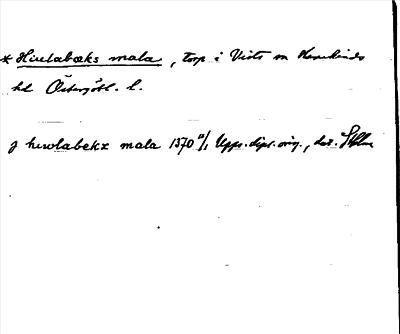 * Hiulabæks mala, torp i Vists sn Hanekinds
hd Östergötl. l.
j hiwlabekx mala 1370 11/1 Upps. dipl. orig., dat. Sthlm